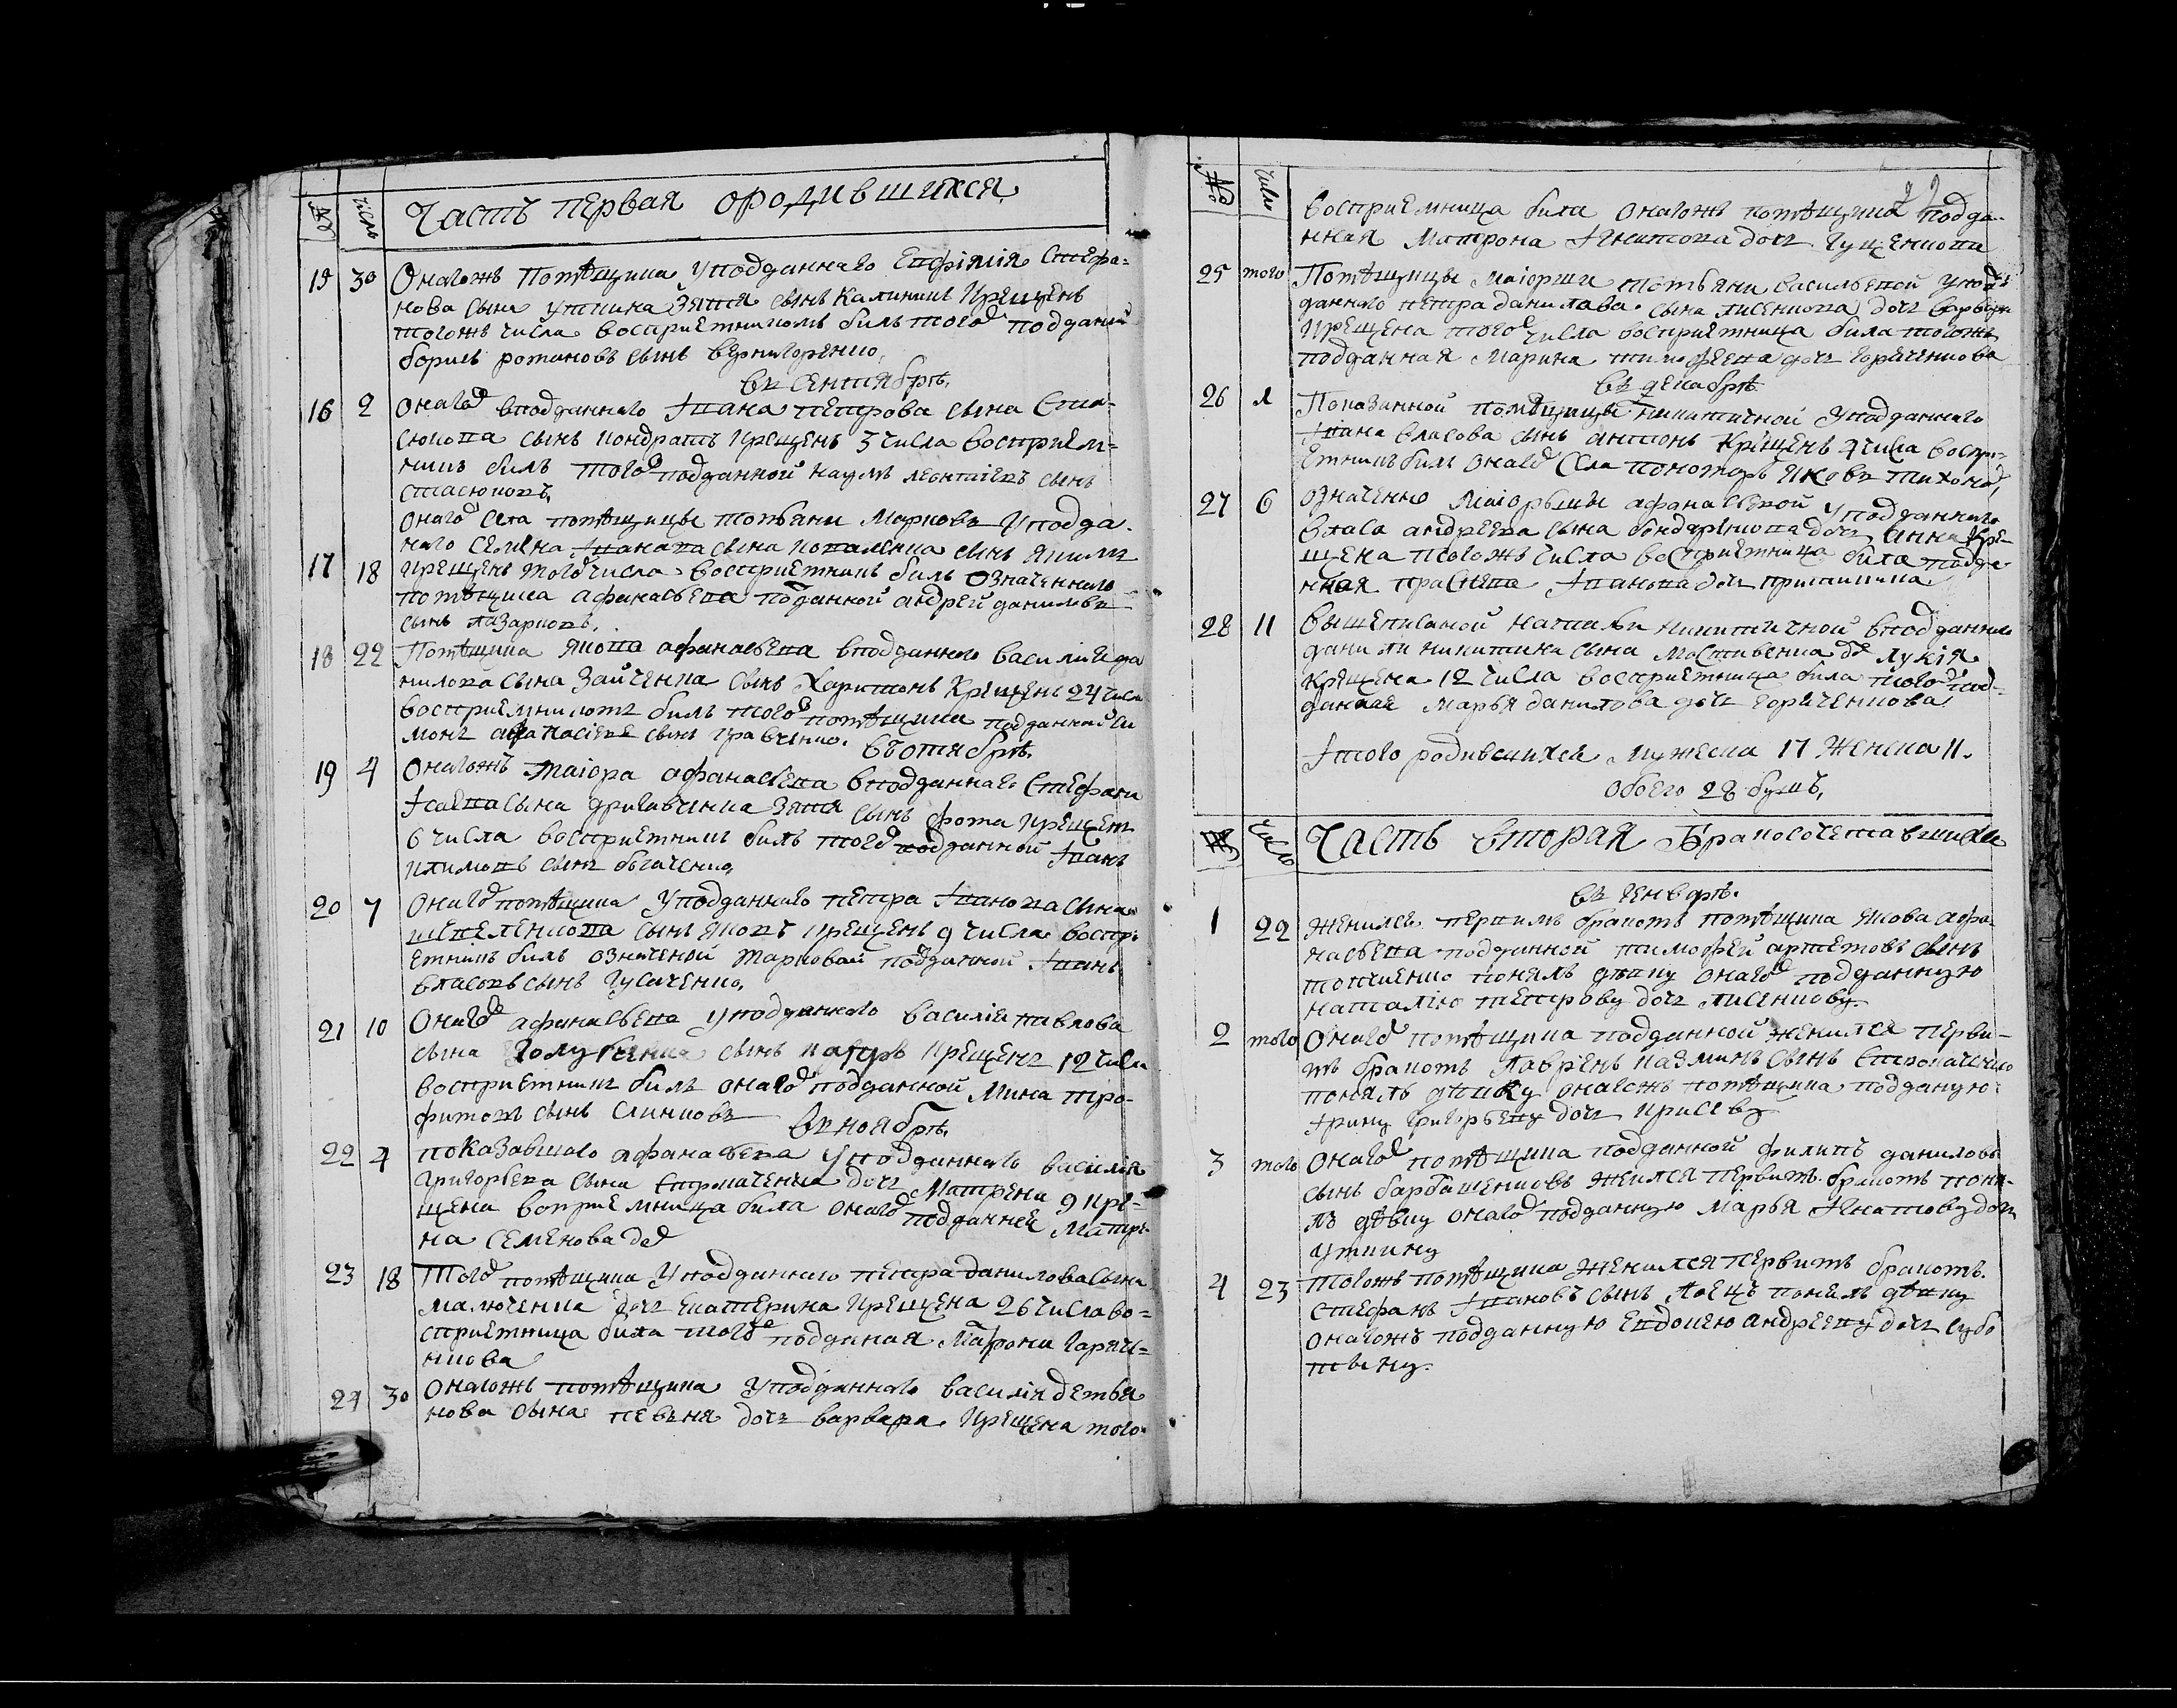 №
Число
Часть первая ородившихся
15 30 Онагожъ Помѣщика Уподданнаго Евфимія Стефа-
нова сына Уткина Зятя сынъ Калиникъ Крещенъ
тогожъ числа восприемникомъ билъ того подданий
борисъ романовъ сынъ вернигоренко
въ сентябрѣ.
16 2 Онаго вподданнаго Івана петрова сына Ста-
сюкова сынъ Кондратъ Крещенъ 3 числа восприем-
никъ билъ того подданной наумъ леонтіевъ сынъ
стасюковъ,
оного села помѣщицы татьяни Марковъ Упода-
17 18 наго семена Іванова сына коваленка сынъ Якимъ
Крещенъ того числа восприемникъ билъ Означеннаго
помѣщика афанасьева подданной андрей даниловъ
сынъ лазарковъ,
18 22 Помѣщика якова афанасьева вподданного василия да
нилова сына Зайченка сынъ Харитонъ Крещенъ 24 числа
восприемникомъ билъ того помѣщика подданной си
монъ афанасіевъ сынъ кравченко. въ октябрѣ.
19 4 Онагожъ Маіора афанасьева вподданнаго Стефана
Ісаева сына зятя сынъ фома Крещенъ
6 числа восприемникъ билъ того подданной Іванъ
климовъ сынъ богаченко,
20 7 Онаго помѣщика Уподданнаго петра Іванова сына
шевеленкова сынъ яковъ Крещенъ 9 числа воспри-
емникъ билъ означеной Марковай подданной Іванъ
власовъ сынъ Гусаченко,
21 10 Онаго афанасьева Уподданнаго василія павлова
сына Голубенка сынъ Крещенъ 12 числа
восприемникъ билъ онаго подданной Мина тро-
фимовъ сынъ Слинковъ
въ ноябрѣ.
22 4 показавшаго афанасьева Уподданнаго василія
григорьева сына Ермаченка дочь Матрена 9 кре-
щена восприемница била онаго подданней Матре-
на семенова
23 18 Того помѣщика Уподданнаго петра данилова сына
малюченка дочь Екатерина Крещена 26 числа во-
сприемница била того подданая Мафрона Гаряче-
нкова
24 30 Онагожъ помѣщика Уподданнаго василія демья
нова сына певня дочь варвара Крещена того-
№
Число
восприемница била онагожъ помѣщика подда-
нная Матрона Ігнатова дочь Гущенкова
25 того Помѣщицы Маіорши татьяни васильевой Упод-
данного петра данилова сына лисенкова дочь варвара
Крещена того числа восприемница била тогожъ
подданная Марина тимофеева дочь Горяченкова
въ декабрѣ
26 Показанной помѣщицы никитичной Уподданнаго
Івана власова сынъ антонъ Крещенъ 4 числа воспри-
емникъ билъ онаго села пономарь яковъ тихонов,
27 6 означеную Маіоршы афанасьевой Уподданнаго
власа андреева сына бондаренкова дочь Анна кре-
щена тогожъ числа восприемница била подда
нная праскева Іванова дочь
28 11 Вышеписаной натальи никитичной вподданнаго
данили никитина сына мостивенка до Лукія
крещена 12 числа восприемница била того под-
данная Марья данилова дочь Горяченкова
Ітого родившихся Мужеска 17 Женска 11.
Обоего 28 душъ,
№
Число
Часть вторая Браковсочетавшихся
въ генварѣ.
1 22 женился первимъ бракомъ помѣщика якова афа-
насьева подданной тимофей артемовъ сынъ
понялъ дѣвку онаго подданную
наталію петрову дочь лисенкову
2 того Онаго помѣщика подданной женился перви-
мъ бракомъ Лавренъ козминъ сынъ
понялъ дѣвку онагожъ помѣщика подданую
Ірину григорьеву дочь
3 того Онаго помѣщика подданной филипъ даниловъ
сынъ барбашенковъ женился первимъ бракомъ поня-
лъ дѣвку онаго подданную Марья Ігнатову дочь
уткину
4 23 тогожъ помѣщика женился первимъ бракомъ
стефанъ Івановъ сынъ понялъ дѣвку
онагожъ подданную Евдокею андрееву дочь субо
тину.